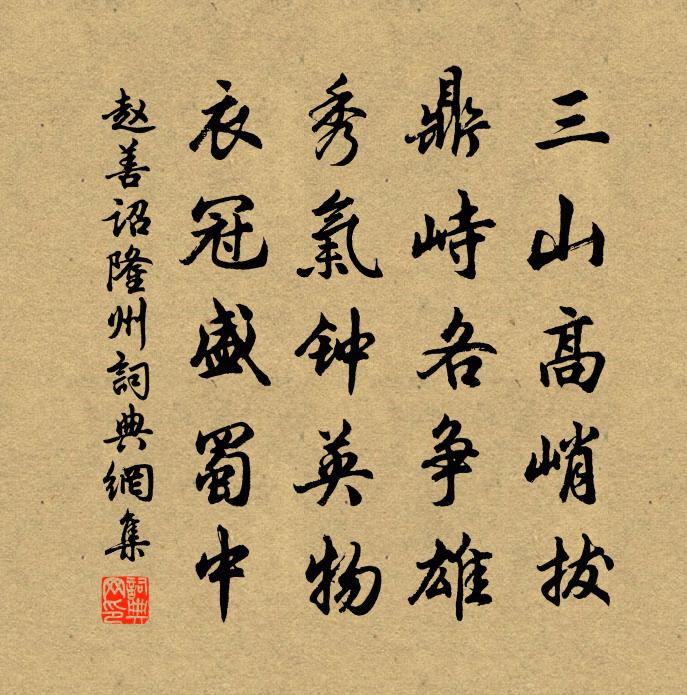 三山高峭拔
鼎峙各争雄
秀氣钟英物
衣冠盛蜀中
赵善诏隆州詞典網集
詞典網印